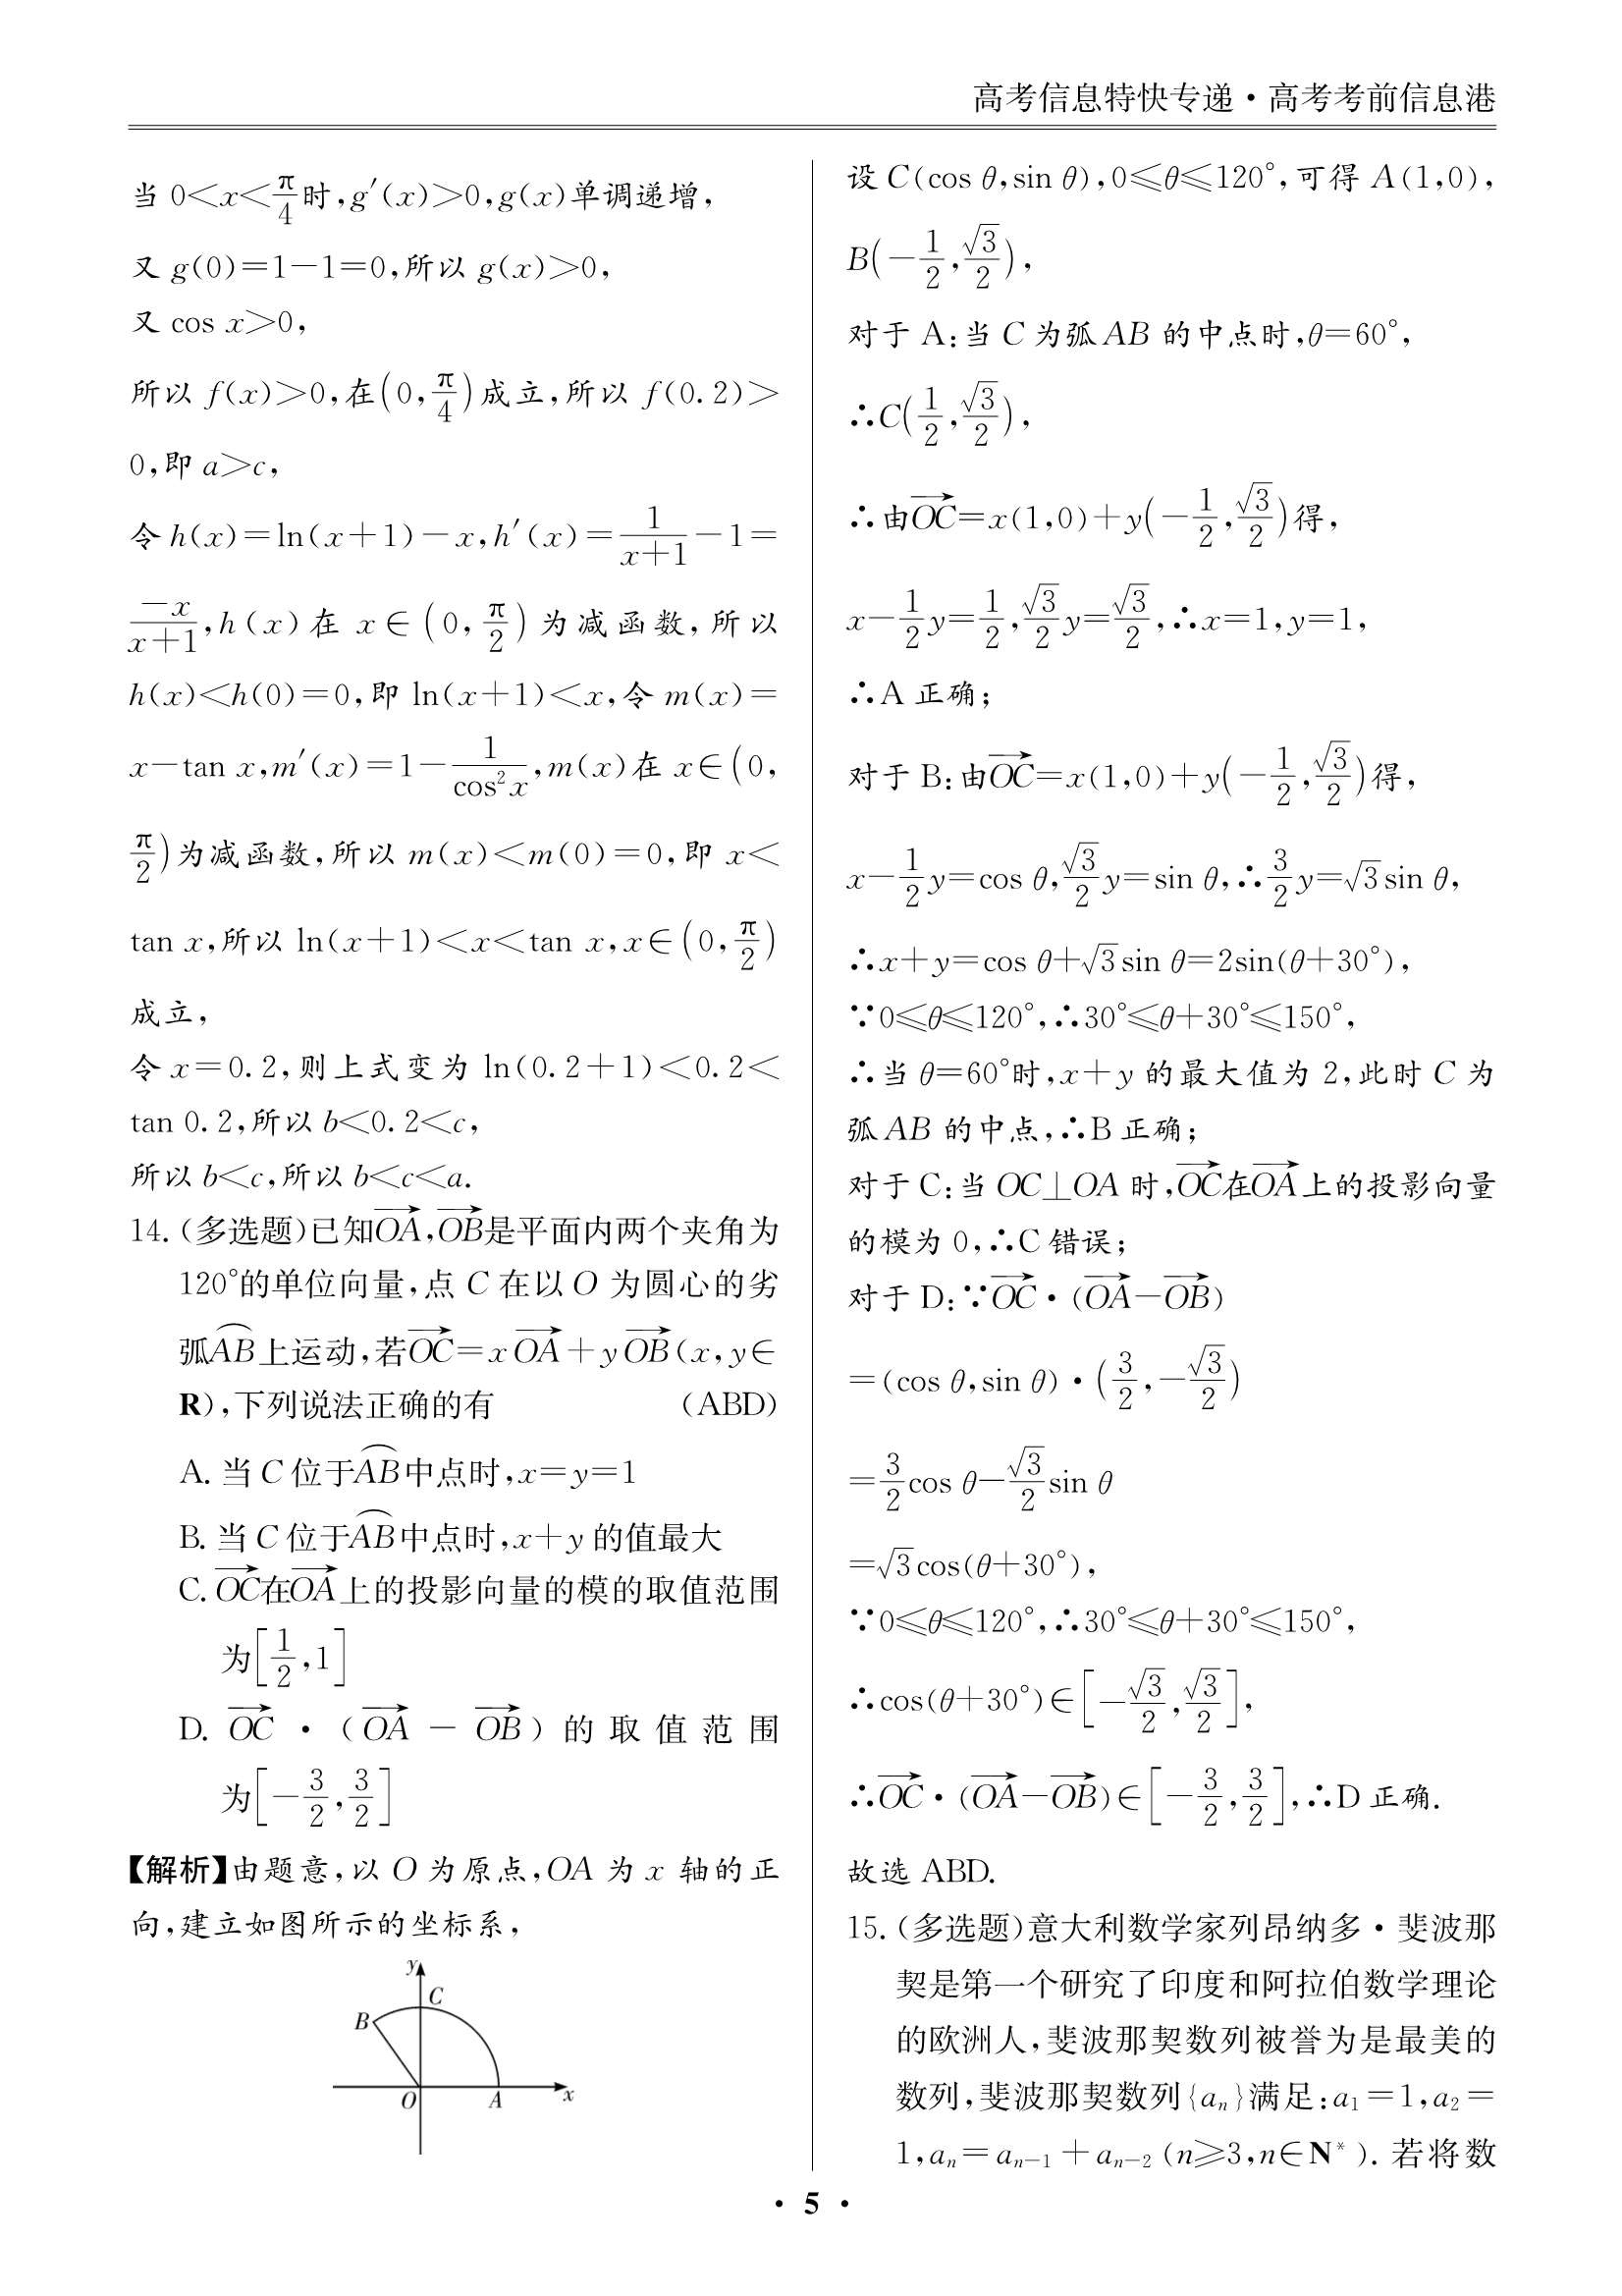 高考信息特快专递·高考考前信息港
当 0<x<π/4时,g′(x)>0,g(x)单调递增,
又 g(0)=1-1=0,所以 g(x)>0,
又 cos x>0,
所以 f(x)>0,在(0,π/4)成立,所以 f(0.2)>
0,即 a>c,
令 h(x)=ln(x+1)-x,h′(x)=1/(x+1)-1=
-x/(x+1),h(x)在 x∈(0,π/2)为减函数,所以
h(x)<h(0)=0,即 ln(x+1)<x,令 m(x)=
x-tan x,m′(x)=1-1/cos²x,m(x)在 x∈(0,
π/2)为减函数,所以 m(x)<m(0)=0,即 x<
tan x,所以 ln(x+1)<x<tan x,x∈(0,π/2)
成立,
令 x=0.2,则上式变为 ln(0.2+1)<0.2<
tan 0.2,所以 b<0.2<c,
所以 b<c,所以 b<c<a.
14.(多选题)已知→OA,→OB是平面内两个夹角为
120°的单位向量,点 C 在以 O 为圆心的劣
弧⌒AB上运动,若→OC=x→OA+y→OB(x,y∈
R),下列说法正确的有 (ABD)
A. 当 C 位于⌒AB中点时,x=y=1
B. 当 C 位于⌒AB中点时,x+y 的值最大
C. →OC在→OA上的投影向量的模的取值范围
为[1/2,1]
D. →OC·(→OA-→OB)的取值范围
为[-3/2,3/2]
【解析】由题意,以 O 为原点,OA 为 x 轴的正
向,建立如图所示的坐标系,
y
C
B
O
A
x
设 C(cos θ,sin θ),0≤θ≤120°,可得 A(1,0),
B(-1/2,√3/2),
对于 A:当 C 为弧 AB 的中点时,θ=60°,
∴C(1/2,√3/2),
∴由→OC=x(1,0)+y(-1/2,√3/2)得,
x-1/2y=1/2,√3/2y=√3/2,∴x=1,y=1,
∴A 正确;
对于 B:由→OC=x(1,0)+y(-1/2,√3/2)得,
x-1/2y=cos θ,√3/2y=sin θ,∴3/2y=√3sin θ,
∴x+y=cos θ+√3sin θ=2sin(θ+30°),
∵0≤θ≤120°,∴30°≤θ+30°≤150°,
∴当 θ=60°时,x+y 的最大值为 2,此时 C 为
弧 AB 的中点,∴B 正确;
对于 C:当 OC⊥OA 时,→OC在→OA上的投影向量
的模为 0,∴C 错误;
对于 D:∵→OC·(→OA-→OB)
=(cos θ,sin θ)·(3/2,-√3/2)
=3/2cos θ-√3/2sin θ
=√3cos(θ+30°),
∵0≤θ≤120°,∴30°≤θ+30°≤150°,
∴cos(θ+30°)∈[-√3/2,√3/2],
∴→OC·(→OA-→OB)∈[-3/2,3/2],∴D 正确.
故选 ABD.
15.(多选题)意大利数学家列昂纳多·斐波那
契是第一个研究了印度和阿拉伯数学理论
的欧洲人,斐波那契数列被誉为是最美的
数列,斐波那契数列{aₙ}满足:a₁=1,a₂=
1,aₙ=aₙ₋₁+aₙ₋₂(n≥3,n∈N*).若将数
· 5 ·